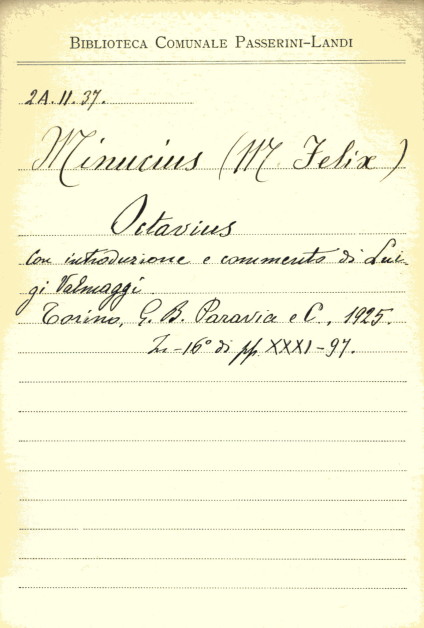 BIBLIOTECA COMUNALE PASSERINI-LANDI
2A.II.37.
Minucius (M Felix)
Octavius
Con introduzione e commento di Lui-
gi Valmaggi
Torino, G. B. Paravia e C., 1925.
In-16° di pp. XXXI-97.